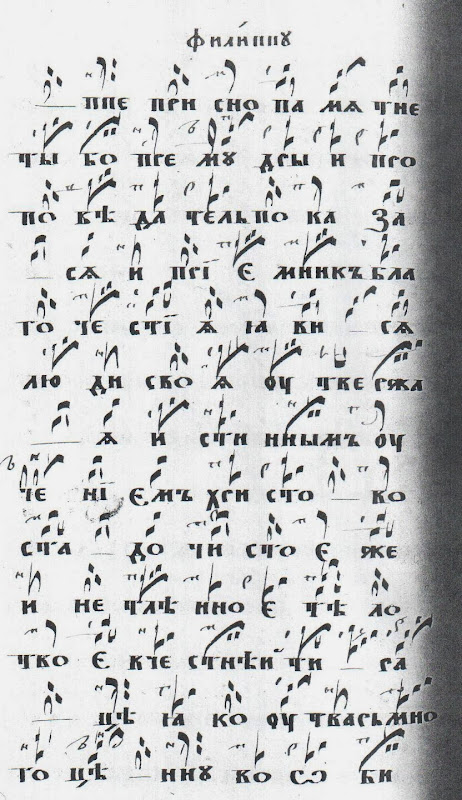 фили́ппꙋ
— ппе при сно па мѧ тне
ты бо пре мꙋ дры и про
по вѣ да тель по ка за
сѧ и прї є мникъ бла
го че стї ѧ ꙗ ви — сѧ
лю ди сво ѧ оу тве ржа
— ѧ и сти нным̾ъ оу
че нї ємъ хри сто — во
ста — до чи сто є же
и не тлѣ нно є тѣ ло
тво є вче стнѣи чи — ра
— цѣ ꙗ ко оу тварь мно
го цѣ — ннꙋ во ѡ би